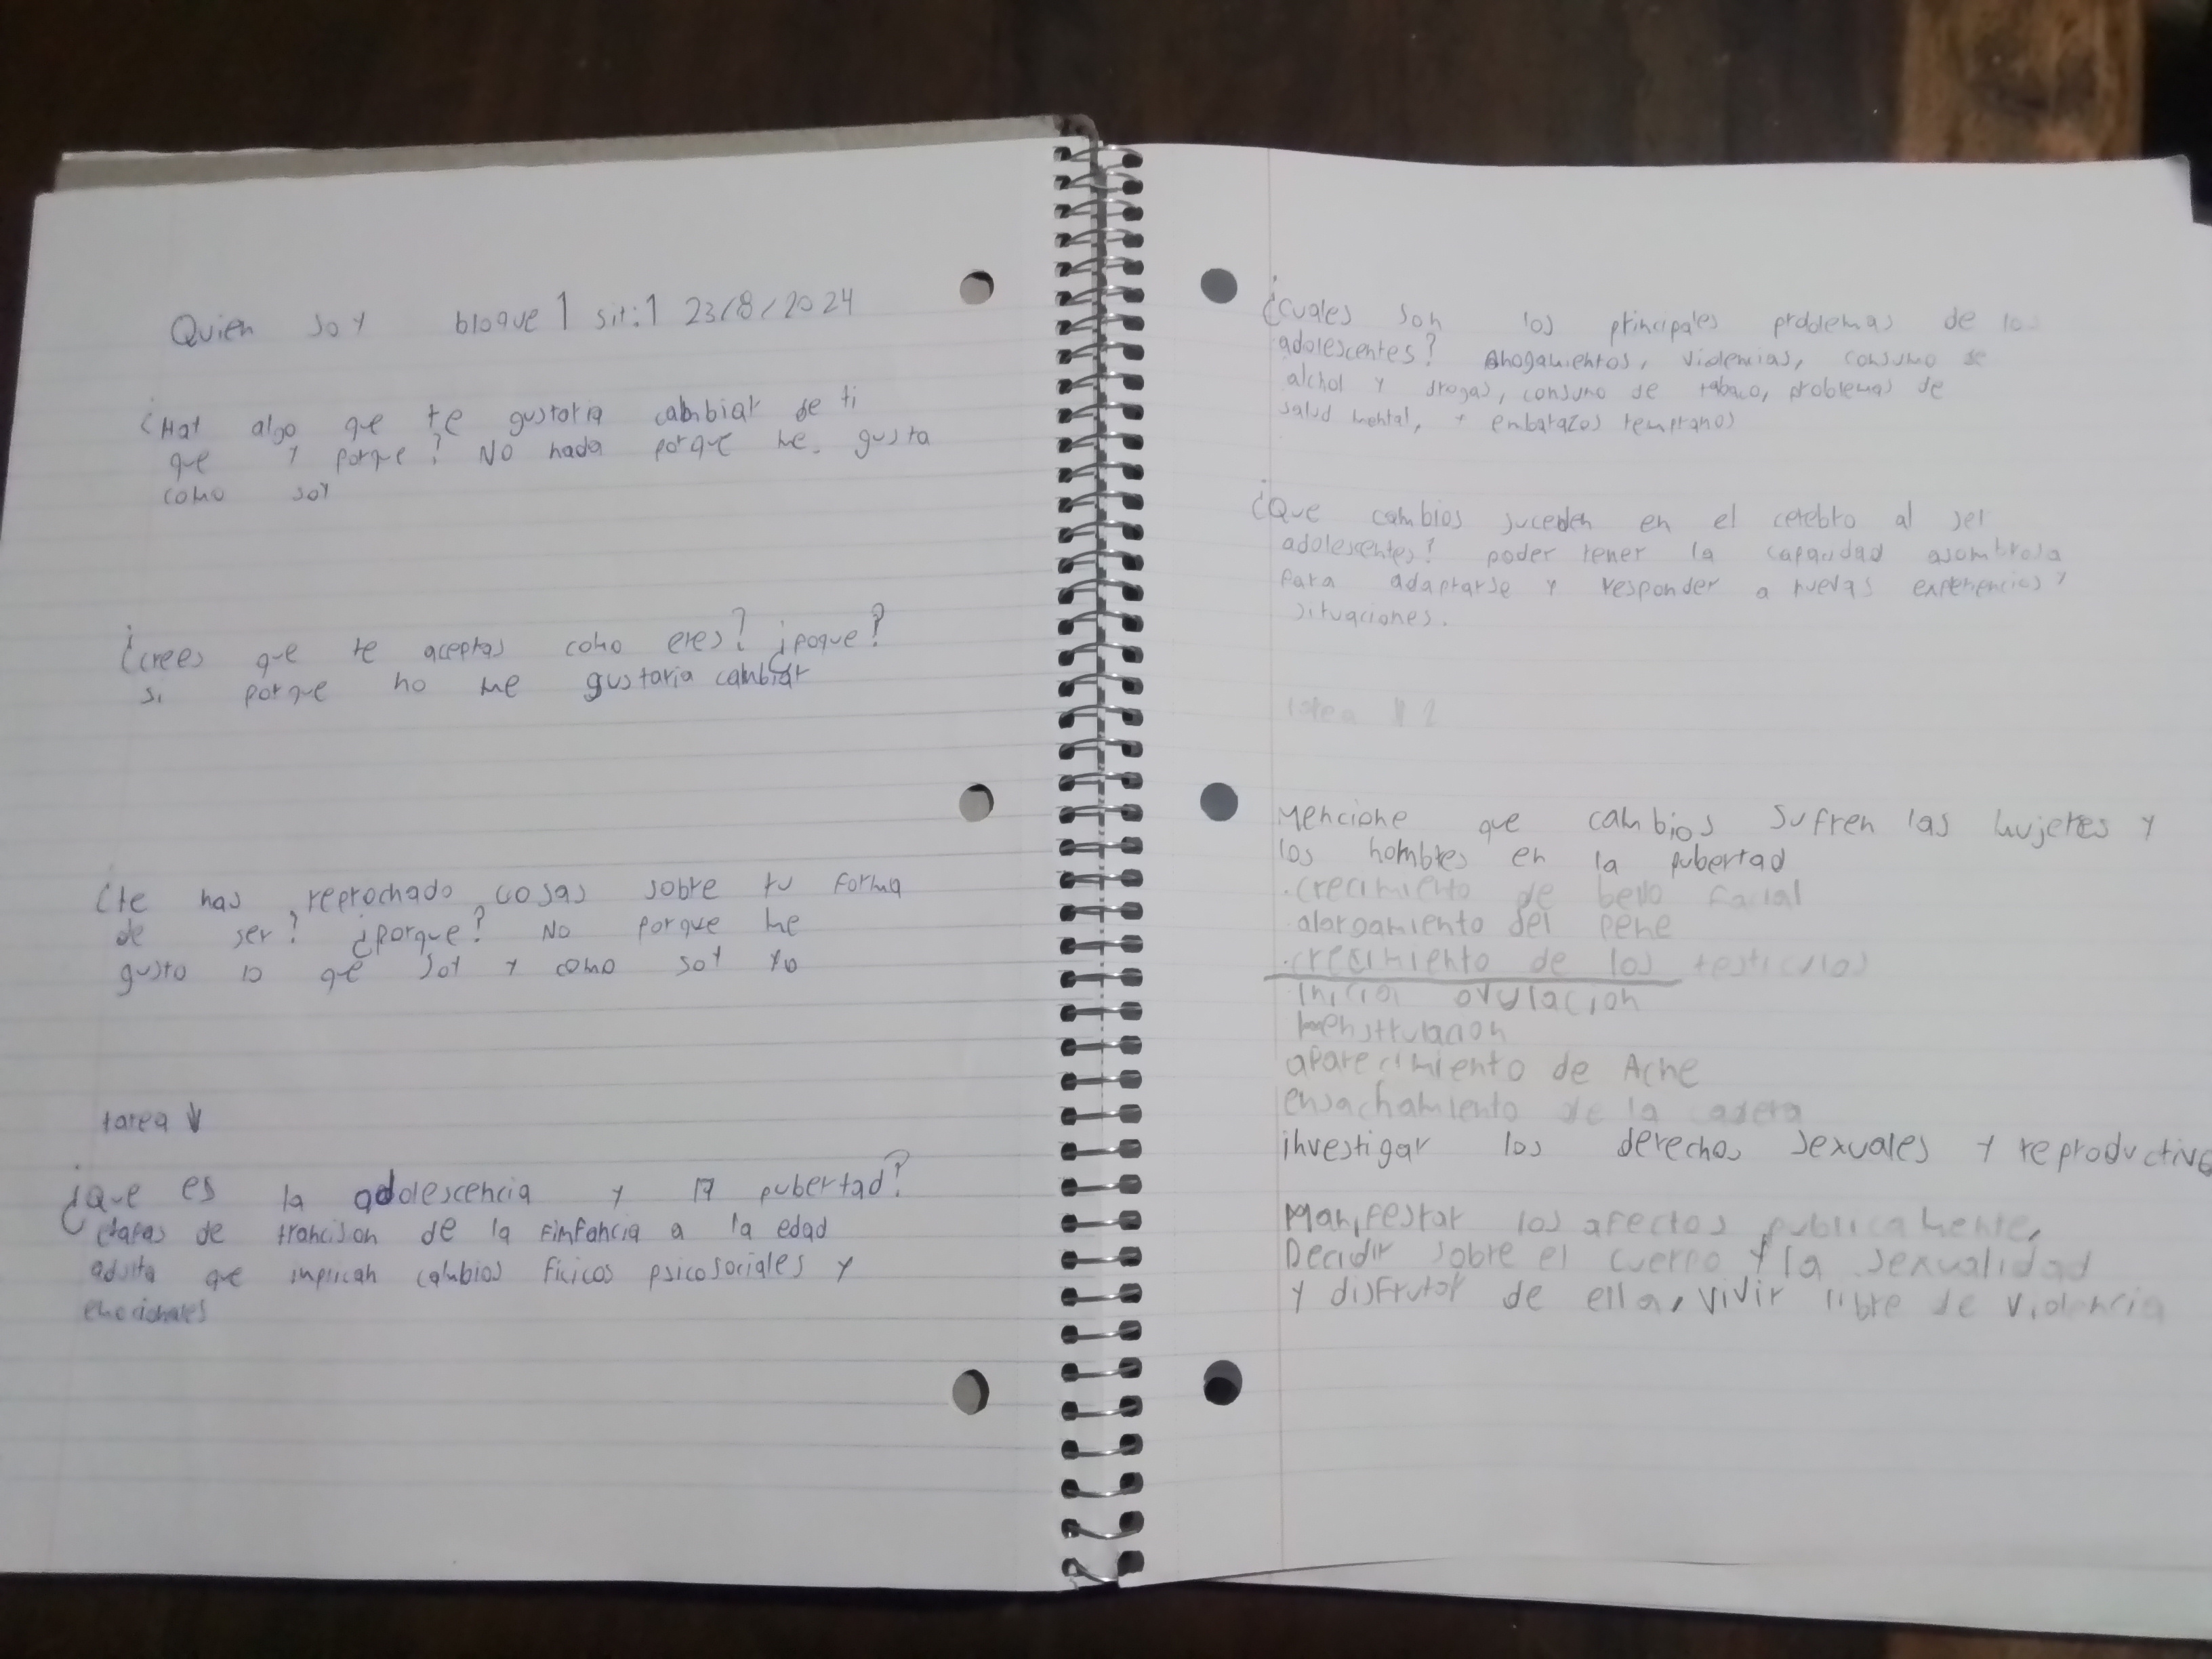 Quien soy bloque 1 sit:1 23/8/2024
¿Hay algo que te gustaria cambiar de ti
que y porque? No nada porque me gusta
como soy
¿crees que te aceptas como eres? ¿poque?
si porque no me gustaria cambiar
¿te has reprochado cosas sobre tu forma
de ser? ¿porque? No porque me
gusto lo que soy y como soy yo
tarea ↓
¿que es la adolescencia y la pubertad?
etapas de trancison de la finfancia a la edad
adulta que inplican cambios ficicos psicosociales y
emocionales
¿cuales son los principales problemas de los
adolescentes? Ahogamientos, violencias, consumo de
alchol y drogas, consumo de tabaco, problemas de
salud mental, + embarazos tempranos
¿Que cambios suceden en el cerebro al ser
adolescentes? poder tener la capacidad asombrosa
para adaptarse y responder a nuevas experiencias y
situaciones.
tarea # 2
Mencione que cambios sufren las mujeres y
los hombres en la pubertad
.crecimiento de bello facial
alargamiento del pene
.crecimiento de los testiculos
inicia ovulacion
menstruacion
aparecimiento de Acne
ensachamiento de la cadera
investigar los derechos sexuales y reproductivos
Manifestar los afectos publicamente,
Decidir sobre el cuerpo y la sexualidad
y disfrutar de ella, vivir libre de violencia